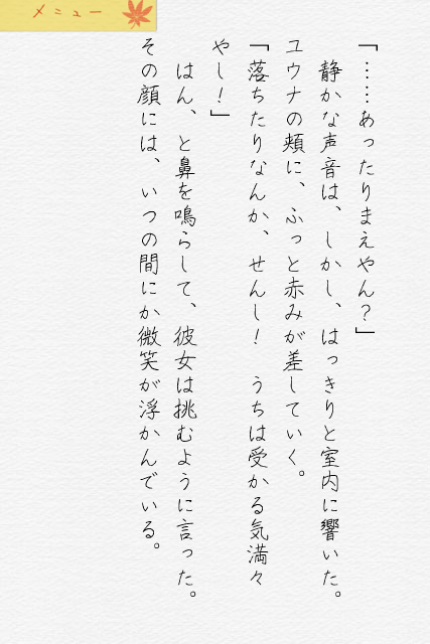 メニュー
「……あったりまえやん？」
静かな声音は、しかし、はっきりと室内に響いた。
ユウナの頬に、ふっと赤みが差していく。
「落ちたりなんか、せんし！　うちは受かる気満々
やし！」
はん、と鼻を鳴らして、彼女は挑むように言った。
その顔には、いつの間にか微笑が浮かんでいる。